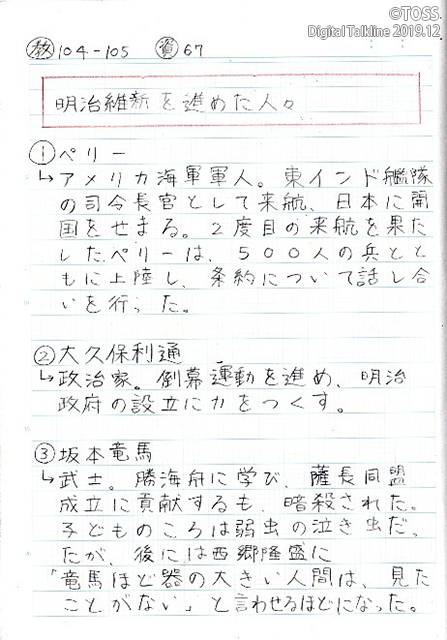 ©TOSS.
Digital Talkline 2019.12
教 104-105 資 67
明治維新を進めた人々
①ペリー
↳アメリカ海軍軍人。東インド艦隊
の司令長官として来航、日本に開
国をせまる。2度目の来航を果た
したペリーは、500人の兵とと
もに上陸し、条約について話し合
いを行った。
②大久保利通
↳政治家。倒幕運動を進め、明治
政府の設立に力をつくす。
③坂本竜馬
↳武士。勝海舟に学び、薩長同盟
成立に貢献するも、暗殺された。
子どものころは弱虫の泣き虫だっ
たが、後には西郷隆盛に
「竜馬ほど器の大きい人間は、見た
ことがない」と言わせるほどになった。